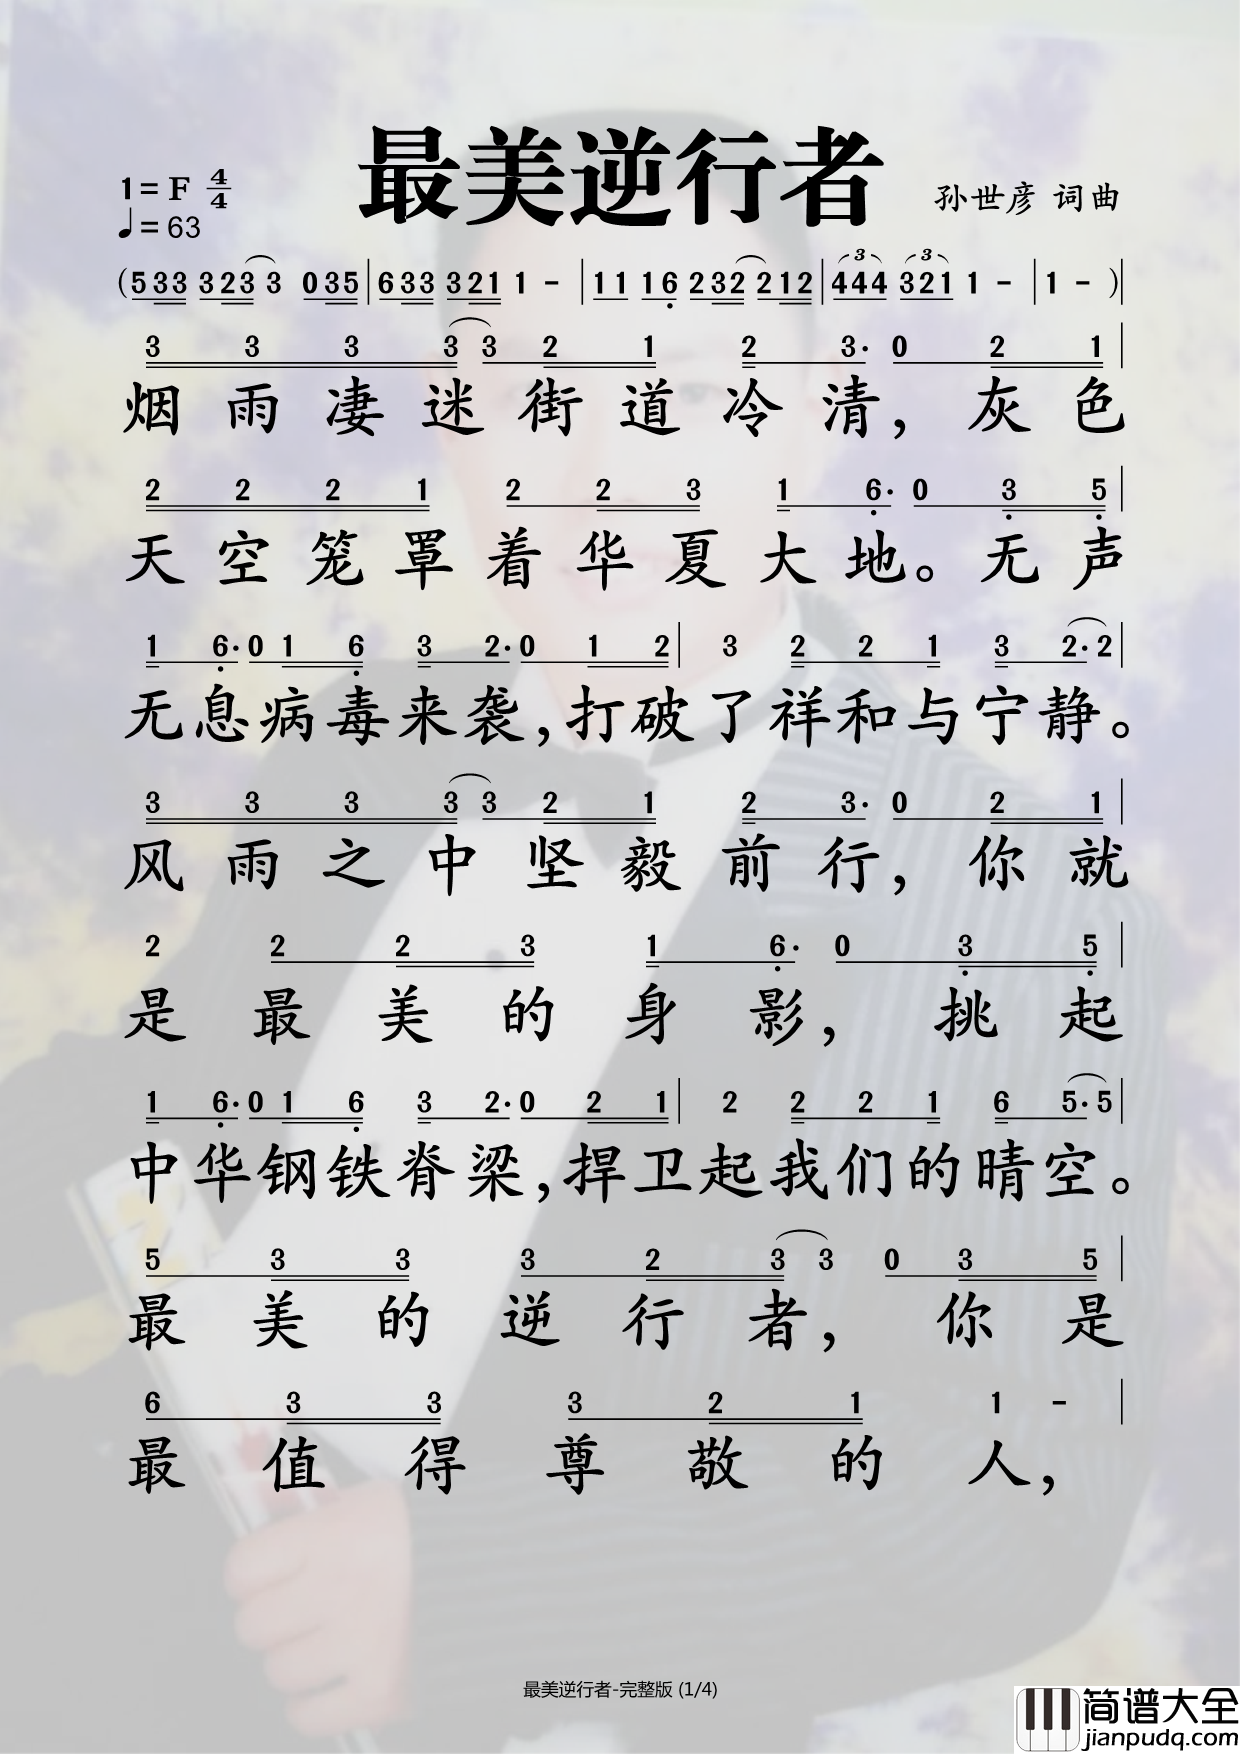 最美逆行者
1=F 4/4
♩=63
孙世彦 词曲
(533 323 3 035|633 321 1 -|11 16 232 212|444 321 1 -|1 - )|
3 3 3 3 3 2 1 2 3· 0 2 1|
烟雨凄迷街道冷清，灰色
2 2 2 1 2 2 3 1 6· 0 3 5|
天空笼罩着华夏大地。无声
1 6· 0 1 6 3 2· 0 1 2| 3 2 2 1 3 2· 2|
无息病毒来袭，打破了祥和与宁静。
3 3 3 3 3 2 1 2 3· 0 2 1|
风雨之中坚毅前行，你就
2 2 2 3 1 6· 0 3 5|
是最美的身影，挑起
1 6· 0 1 6 3 2· 0 2 1| 2 2 2 1 6 5· 5|
中华钢铁脊梁，捍卫起我们的晴空。
5 3 3 3 2 3 3 0 3 5|
最美的逆行者，你是
6 3 3 3 2 1 1 -|
最值得尊敬的人，
最美逆行者-完整版 (1/4)
简谱大全
jianpudq.com